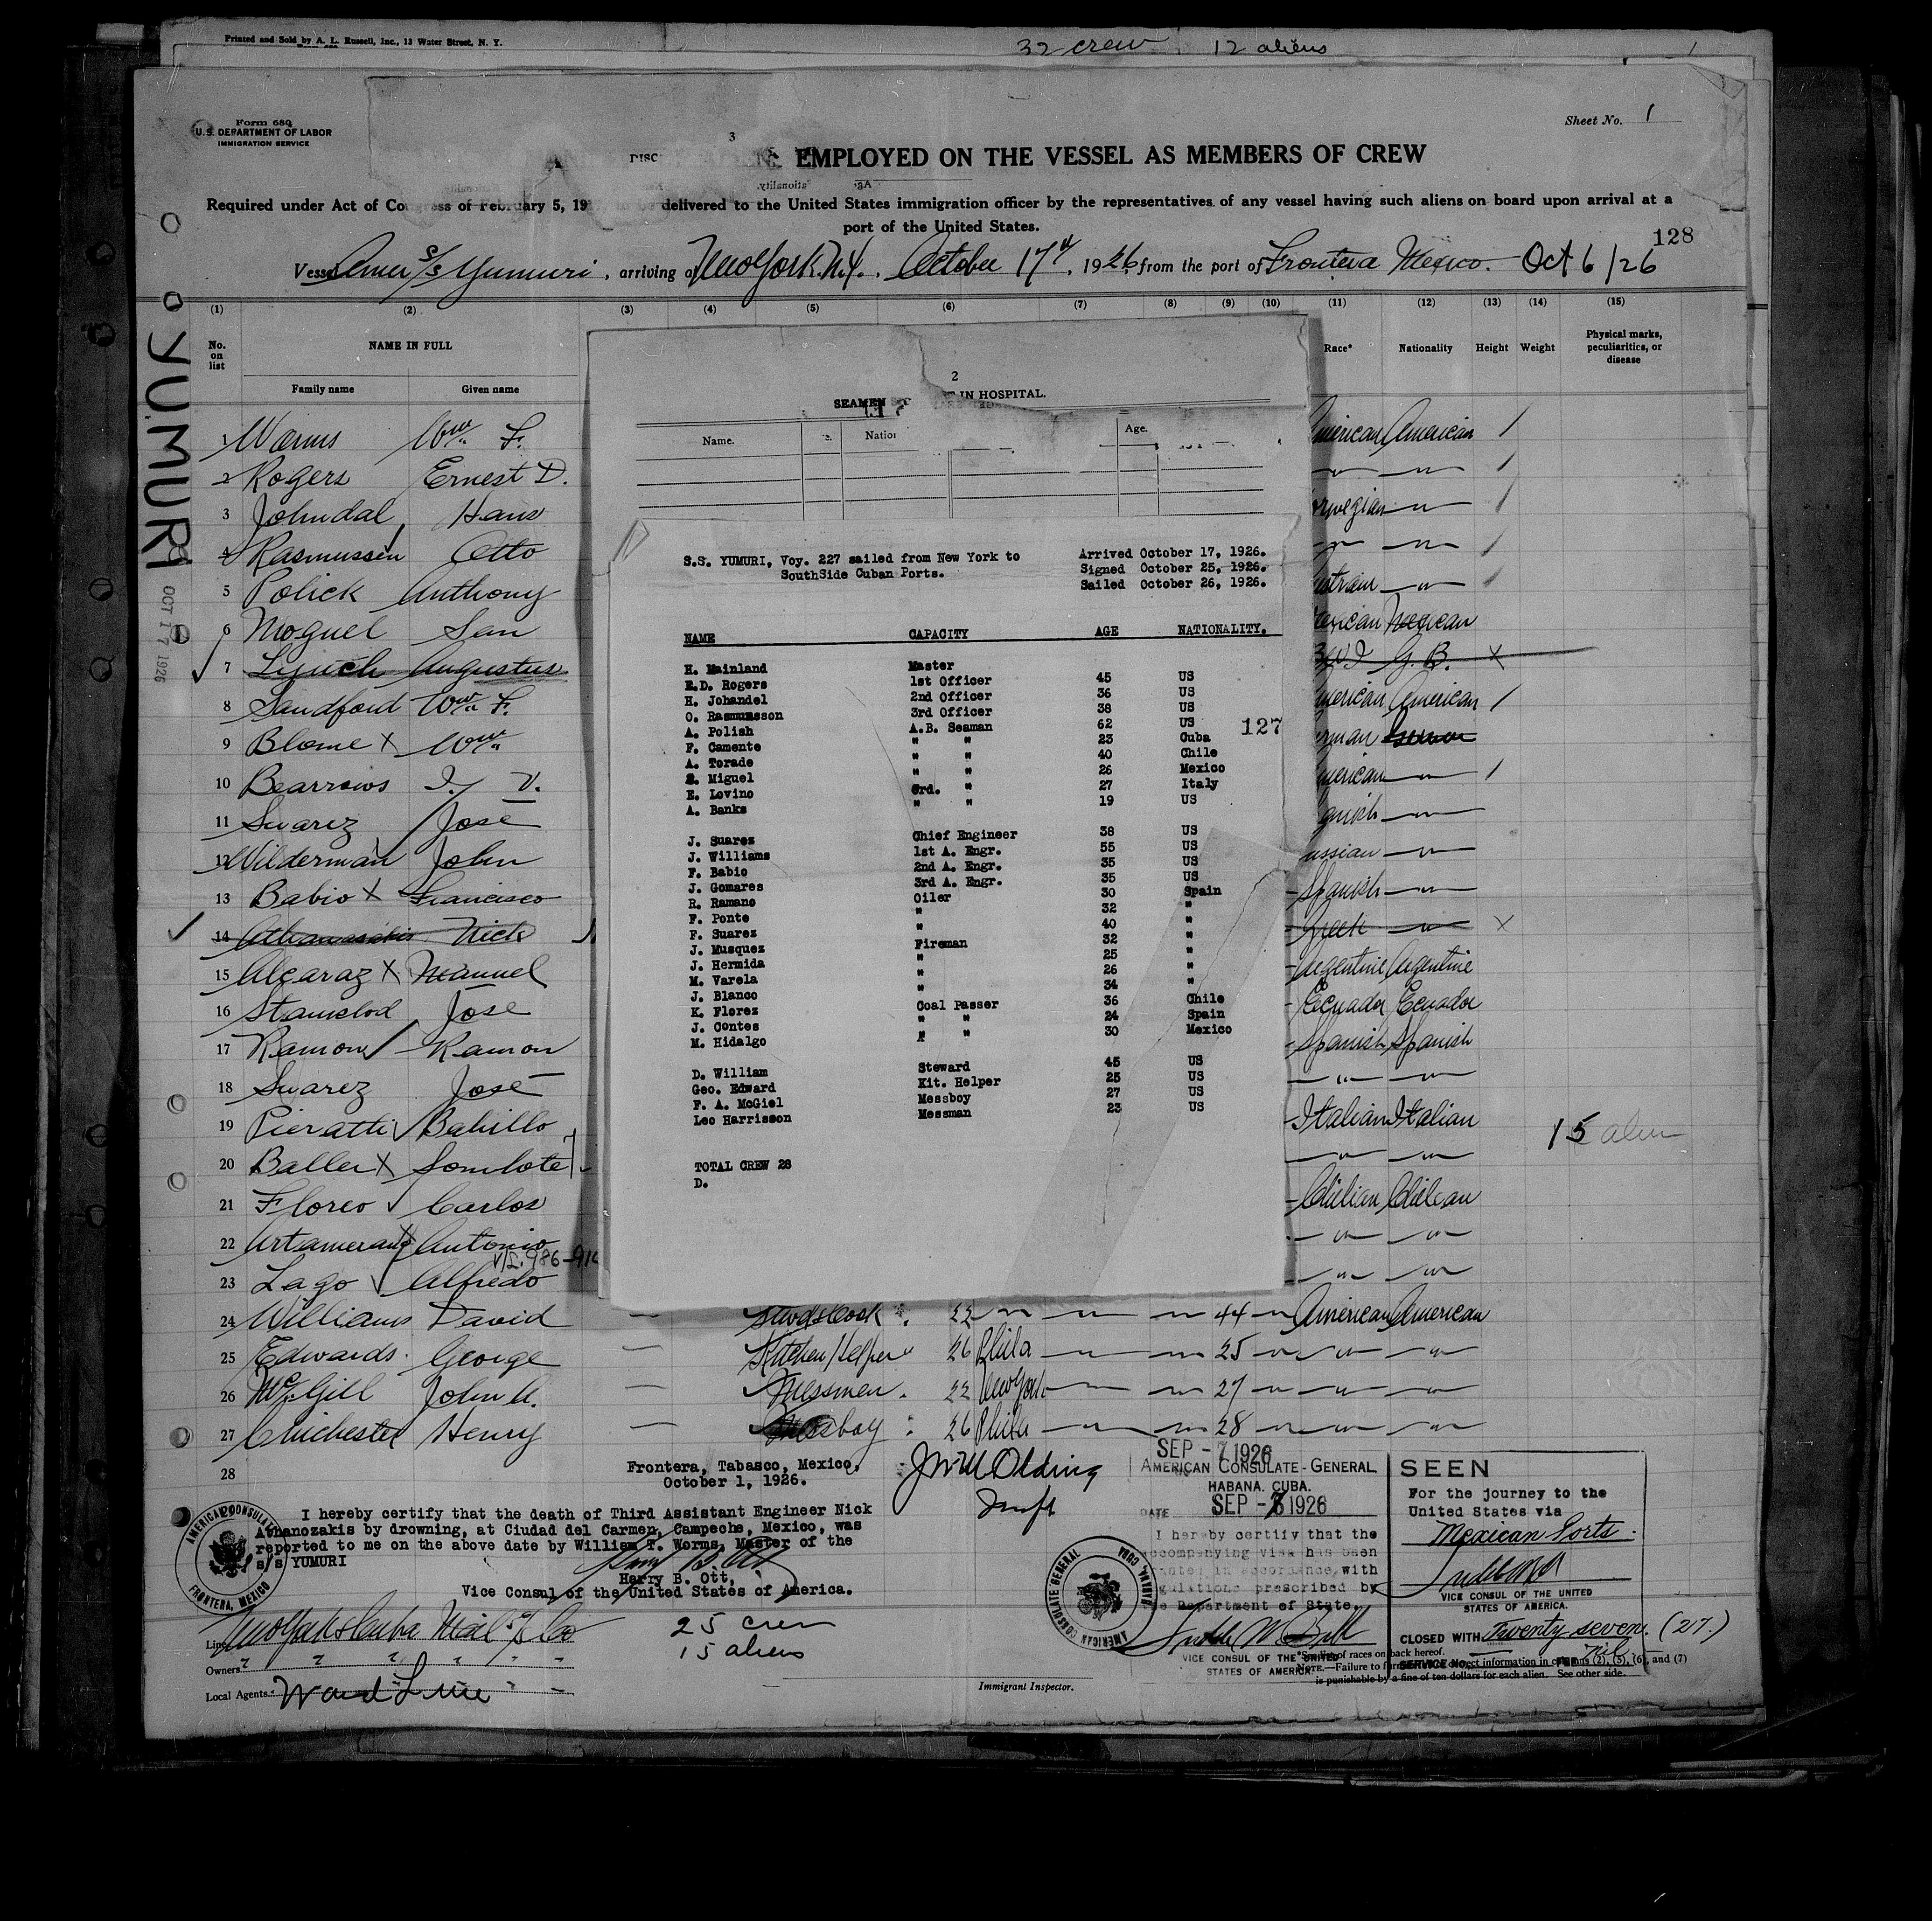 Printed and Sold by A. L. Russell, Inc., 13 Water Street, N. Y.
32 crew 12 aliens
Form 680
U.S. DEPARTMENT OF LABOR
IMMIGRATION SERVICE
Sheet No. 1
3
DISC
EMPLOYED ON THE VESSEL AS MEMBERS OF CREW
Required under Act of Congress of February 5, 19 delivered to the United States immigration officer by the representatives of any vessel having such aliens on board upon arrival at a
port of the United States.
128
Vessel Amer S/S Yumuri, arriving at New York. N.Y., October 17th, 1926, from the port of Frontera Mexico. Oct 6/26
YUMURI
OCT 17 1926
(1) (2) (3) (4) (5) (6) (7) (8) (9) (10) (11) (12) (13) (14) (15)
No. on list
NAME IN FULL
Family name Given name
Race* Nationality Height Weight Physical marks, peculiarities, or disease
1 Worms Wm. F. American American
2 Rogers Ernest D.
3 Johndal Hans
4 Rasmussen Otto
5 Polick Anthony
6 Moguel San Mexican
7 Lynch Augustus G. B. X
8 Sandford Wm. F. American American
9 Blome X Wm.
10 Bearrows I. V.
11 Suarez Jose
12 Wilderman John
13 Babio X Francisco Spanish
14 Nick Greek X
15 Alcaraz X Manuel Argentine Argentine
16 Jose Ecuador Ecuador
17 Ramon Ramon Spanish Spanish
18 Suarez Jose
19 Pieratti Babillo Italian Italian
15 alien
20 Baller X
21 Flores Carlos Chilian Chilean
22 Antonio
23 Lago Alfredo
24 Williams David 22 44 American American
25 Edwards George Kitchen Helper 26 Phila 25
26 McGill John A. Messman 22 New York 27
27 Chichester Henry Messboy 26 Phila 28
28
2
SEAMEN IN HOSPITAL.
Name. Age.
S.S. YUMURI, Voy. 227 sailed from New York to
SouthSide Cuban Ports.
Arrived October 17, 1926.
Signed October 25, 1926.
Sailed October 26, 1926.
NAME CAPACITY AGE NATIONALITY.
H. Mainland Master
E.D. Rogers 1st Officer 45 US
H. Johandel 2nd Officer 36 US
O. Rasmusson 3rd Officer 38 US
A. Polish A.B. Seaman 62 US
127
F. Camente " " 23 Cuba
A. Torade " " 40 Chile
S. Miguel " " 26 Mexico
E. Lovino Ord. " 27 Italy
A. Banks " " 19 US
J. Suarez Chief Engineer 38 US
J. Williams 1st A. Engr. 55 US
F. Babio 2nd A. Engr. 35 US
J. Gomares 3rd A. Engr. 35 US
R. Ramano Oiler 30 Spain
F. Ponte " 32 "
F. Suarez " 40 "
J. Musquez Fireman 32 "
J. Hermida " 25 "
M. Varela " 26 "
J. Blanco " 34 "
K. Florez Coal Passer 36 Chile
J. Contes " " 24 Spain
M. Hidalgo " " 30 Mexico
D. William Steward 45 US
Geo. Edward Kit. Helper 25 US
F. A. McGiel Messboy 27 US
Leo Harrisson Messman 23 US
TOTAL CREW 28
D.
Frontera, Tabasco, Mexico,
October 1, 1926.
I hereby certify that the death of Third Assistant Engineer Nick
Athanozakis by drowning, at Ciudad del Carmen, Campeche, Mexico, was
reported to me on the above date by William T. Worms, Master of the
s/s YUMURI
Harry B. Ott,
Vice Consul of the United States of America.
AMERICAN CONSULATE
FRONTERA, MEXICO
25 crew
15 aliens
Line New York & Cuba Mail S/S Co
Owners
Local Agents Ward Line
Immigrant Inspector.
SEP -7 1926
AMERICAN CONSULATE-GENERAL
HABANA, CUBA.
DATE SEP -7 1926
I hereby certify that the
accompanying visa has been
granted in accordance with
regulations prescribed by
the Department of State.
VICE CONSUL OF THE UNITED
STATES OF AMERICA
AMERICAN CONSULATE GENERAL
HABANA, CUBA
SEEN
For the journey to the
United States via
Mexican Ports.
VICE CONSUL OF THE UNITED
STATES OF AMERICA.
CLOSED WITH Twenty seven. (27.)
SERVICE No. FEE Nil
*See list of races on back hereof.
NOTE.—Failure to furnish correct information in columns (2), (5), (6), and (7)
is punishable by a fine of ten dollars for each alien. See other side.